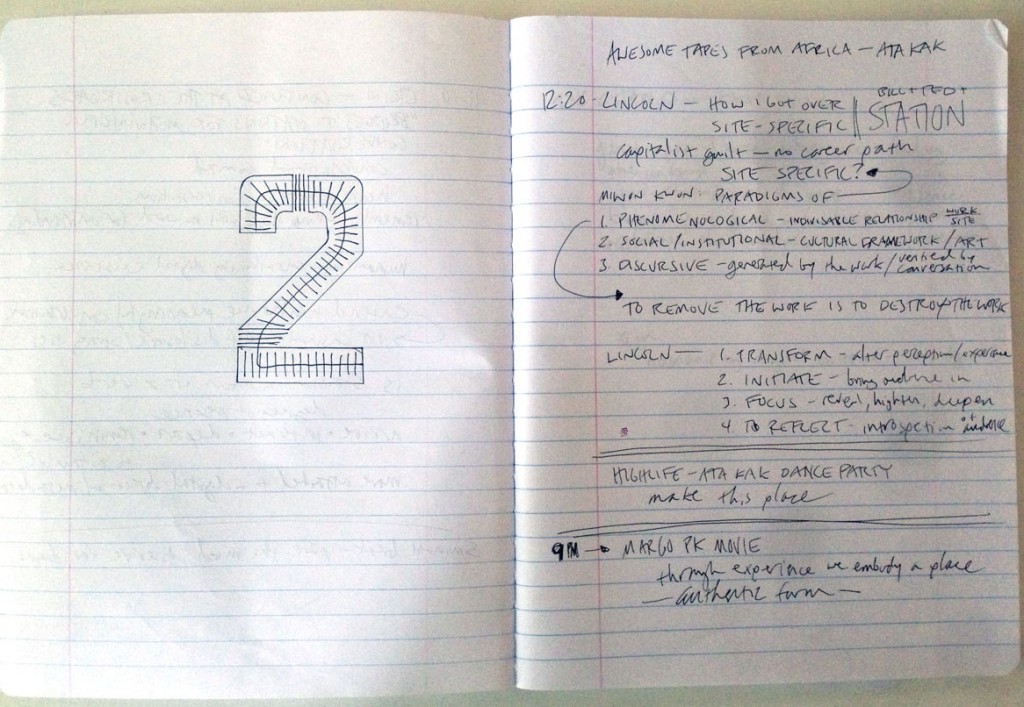 2
AWESOME TAPES FROM AFRICA - ATA KAK
12:20 - LINCOLN - HOW I GOT OVER
SITE-SPECIFIC
BILL + TED +
STATION
capitalist guilt - no career path
SITE SPECIFIC?
MIWON KWON: PARADIGMS OF
1. PHENOMENOLOGICAL - INDIVISABLE RELATIONSHIP WORK SITE
2. SOCIAL/INSTITUTIONAL - CULTURAL FRAMEWORK/ART
3. DISCURSIVE - generated by the work/verified by conversation
TO REMOVE THE WORK IS TO DESTROY THE WORK
LINCOLN - 1. TRANSFORM - alter perception/experience
2. INITIATE - bring in
3. FOCUS - reveal, highten, deepen
4 TO REFLECT - introspection
HIGHLIFE - ATA KAK DANCE PARTY
make this place
9PM → MARGO PK MOVIE
through experience we embody a place
- authentic form -